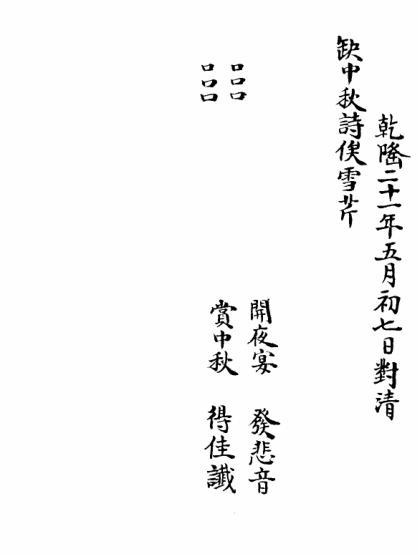 乾隆二十一年五月初七日對清
缺中秋詩俟雪芹
□□□ 開夜宴 發悲音
□□□ 賞中秋 得佳讖